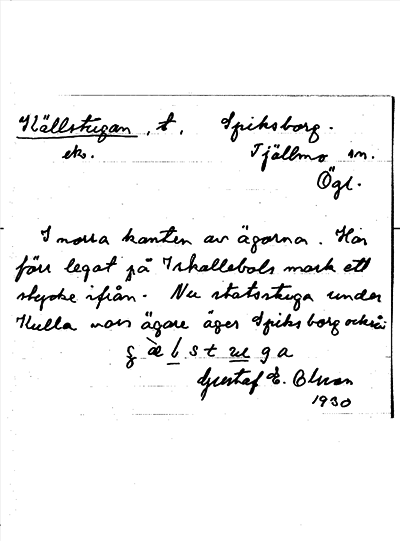 Källstugan, t, Spiksborg.
eks. Tjällmo sn.
Ögl.
I norra kanten av ägorna. Har
förr legat på Iskallebols mark ett
stycke ifrån. Nu statstuga under
Kulla vars ägare äger Spiksborg också.
Gustaf E. Olsson
1930